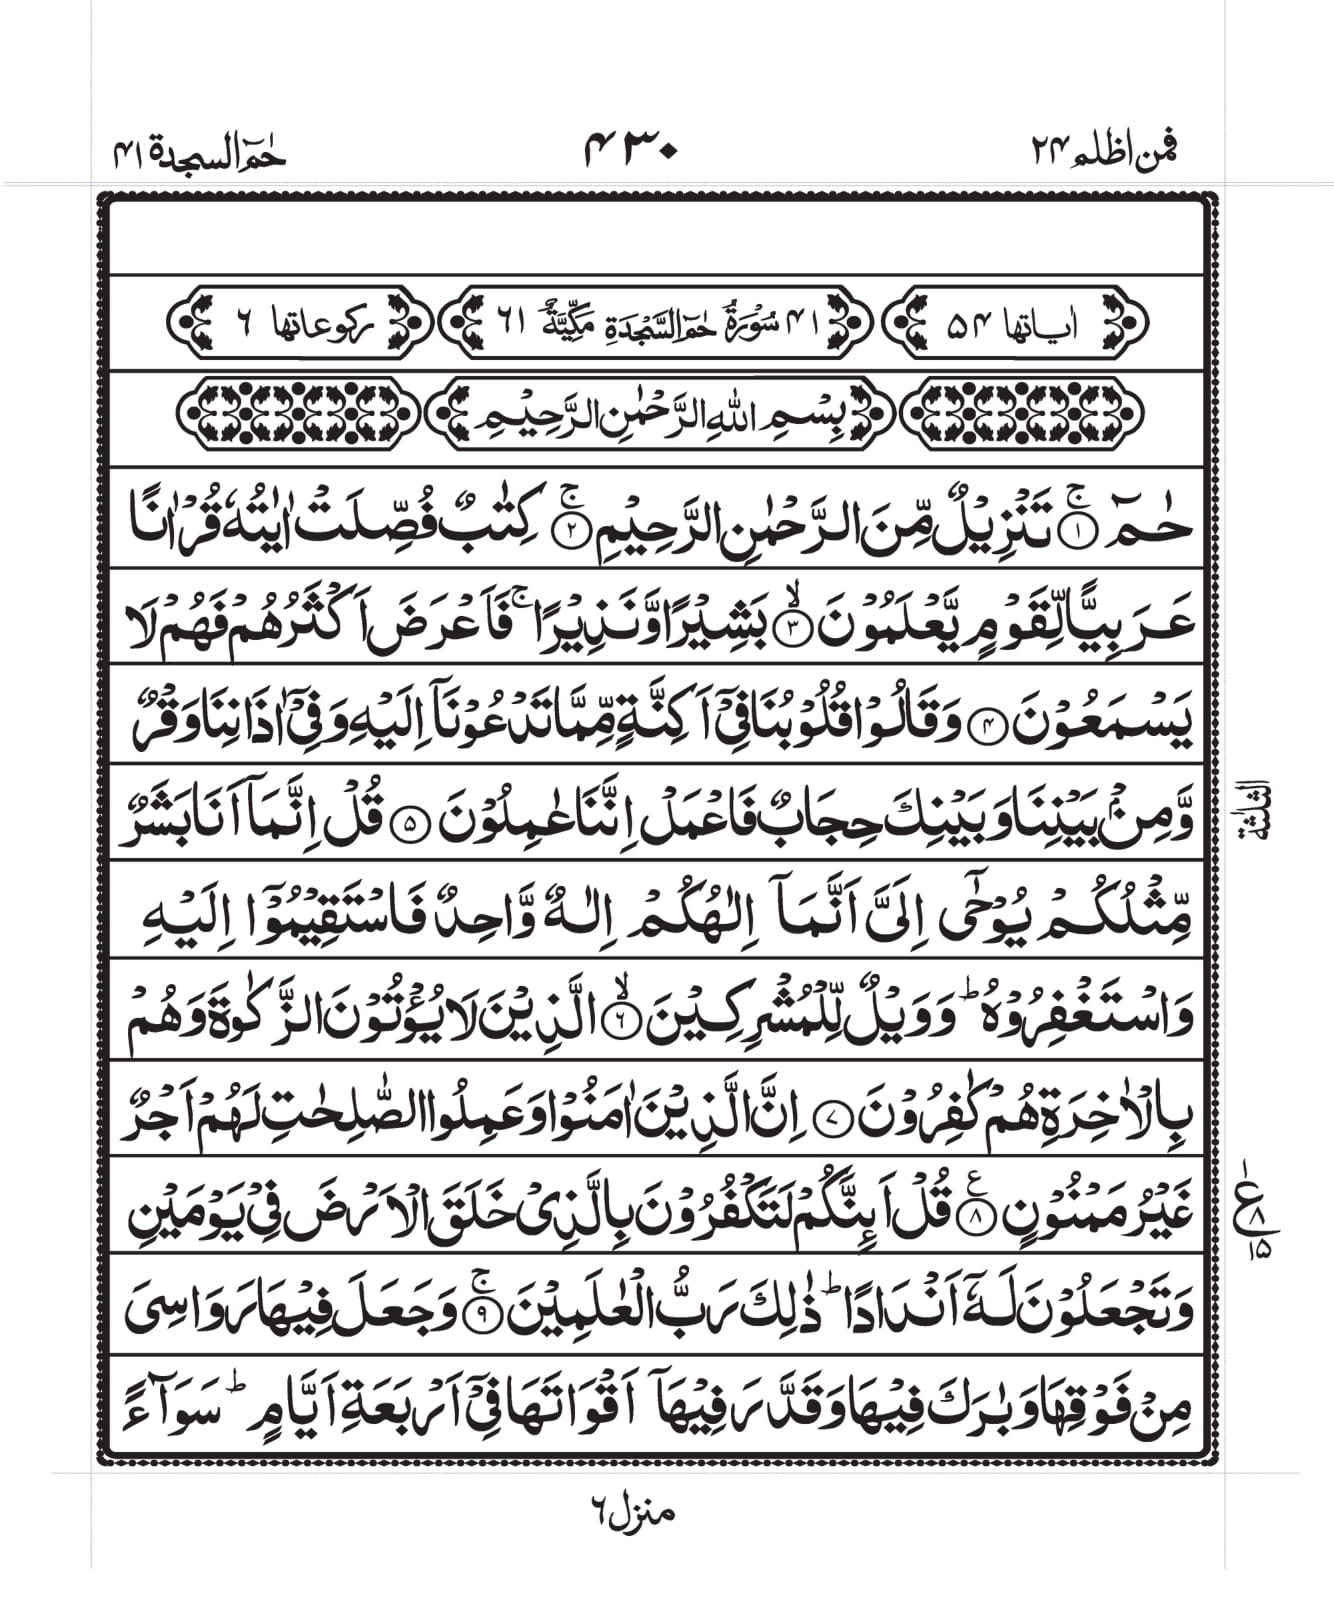 فمن اظلم ۲۴
۴۳۰
حٰمٓ السجدة ۴۱
اٰیاتها ۵۴
۴۱ سُوْرَةُ حٰمٓ السَّجْدَةِ مَكِّیَّةٌ ۶۱
ركوعاتها ۶
بِسْمِ اللهِ الرَّحْمٰنِ الرَّحِیْمِ
حٰمٓ ۚ‏﴿۱﴾ تَنْزِیْلٌ مِّنَ الرَّحْمٰنِ الرَّحِیْمِ ۚ‏﴿۲﴾ كِتٰبٌ فُصِّلَتْ اٰیٰتُهٗ قُرْاٰنًا
عَرَبِیًّا لِّقَوْمٍ یَّعْلَمُوْنَ ۙ‏﴿۳﴾ بَشِیْرًا وَّنَذِیْرًا ۚ فَاَعْرَضَ اَكْثَرُهُمْ فَهُمْ لَا
یَسْمَعُوْنَ ﴿۴﴾ وَقَالُوْا قُلُوْبُنَا فِیْۤ اَكِنَّةٍ مِّمَّا تَدْعُوْنَاۤ اِلَیْهِ وَفِیْۤ اٰذَانِنَا وَقْرٌ
وَّمِنْۢ بَیْنِنَا وَبَیْنِكَ حِجَابٌ فَاعْمَلْ اِنَّنَا عٰمِلُوْنَ ﴿۵﴾ قُلْ اِنَّمَاۤ اَنَا بَشَرٌ
مِّثْلُكُمْ یُوْحٰۤی اِلَیَّ اَنَّمَاۤ اِلٰهُكُمْ اِلٰهٌ وَّاحِدٌ فَاسْتَقِیْمُوْۤا اِلَیْهِ
وَاسْتَغْفِرُوْهُ ؕ وَوَیْلٌ لِّلْمُشْرِكِیْنَ ۙ‏﴿۶﴾ الَّذِیْنَ لَا یُؤْتُوْنَ الزَّكٰوةَ وَهُمْ
بِالْاٰخِرَةِ هُمْ كٰفِرُوْنَ ﴿۷﴾ اِنَّ الَّذِیْنَ اٰمَنُوْا وَعَمِلُوا الصّٰلِحٰتِ لَهُمْ اَجْرٌ
غَیْرُ مَمْنُوْنٍ ﴿۸﴾ ع قُلْ اَىِٕنَّكُمْ لَتَكْفُرُوْنَ بِالَّذِیْ خَلَقَ الْاَرْضَ فِیْ یَوْمَیْنِ
وَتَجْعَلُوْنَ لَهٗۤ اَنْدَادًا ؕ ذٰلِكَ رَبُّ الْعٰلَمِیْنَ ۚ‏﴿۹﴾ وَجَعَلَ فِیْهَا رَوَاسِیَ
مِنْ فَوْقِهَا وَبٰرَكَ فِیْهَا وَقَدَّرَ فِیْهَاۤ اَقْوَاتَهَا فِیْۤ اَرْبَعَةِ اَیَّامٍ ؕ سَوَآءً
الثلٰثة
۱
ع
۸
۱۵
منزل ۶